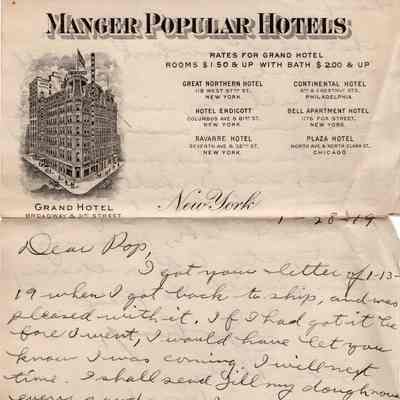 MANGER POPULAR HOTELS
RATES FOR GRAND HOTEL
ROOMS $1.50 & UP WITH BATH $2.00 & UP
GREAT NORTHERN HOTEL
118 WEST 57TH ST.
NEW YORK
CONTINENTAL HOTEL
9TH & CHESTNUT STS.
PHILADELPHIA
HOTEL ENDICOTT
COLUMBUS AVE & 81ST ST.
NEW YORK
BELL APARTMENT HOTEL
1176 FOX STREET,
NEW YORK
NAVARRE HOTEL
SEVENTH AVE & 38TH ST.
NEW YORK
PLAZA HOTEL
NORTH AVE & NORTH CLARK ST.
CHICAGO
GRAND HOTEL
BROADWAY & 31ST STREET
New York
1-28-19
Dear Pop,
I got your letter of 1-13-
19 when I got back to ship, and was
pleased with it. If I had got it be
fore I went, I would have let you
know I was coming. I will next
time. I shall send Jill my doughnous
every